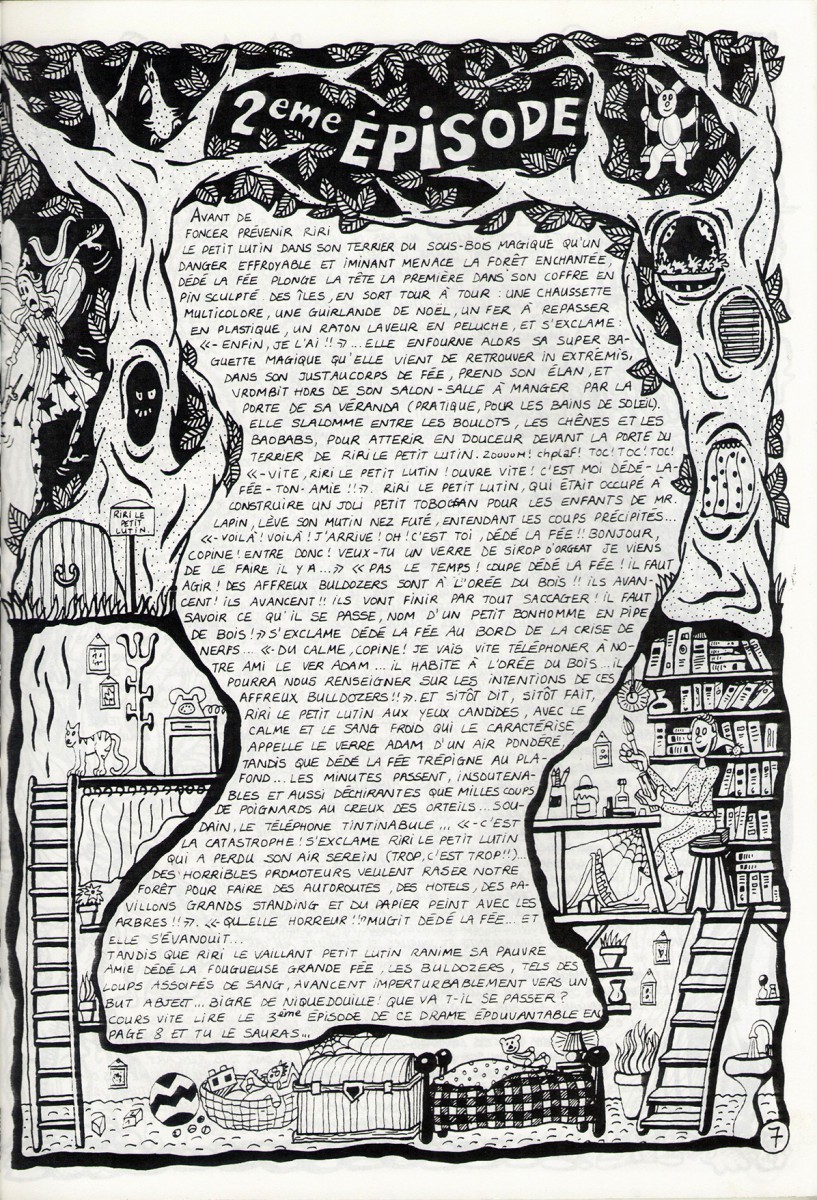 2eme ÉPISODE
AVANT DE
FONCER PRÉVENIR RIRI
LE PETIT LUTIN DANS SON TERRIER DU SOUS-BOIS MAGIQUE QU'UN
DANGER EFFROYABLE ET IMINANT MENACE LA FORÊT ENCHANTÉE,
DÉDÉ LA FÉE PLONGE LA TÊTE LA PREMIÈRE DANS SON COFFRE EN
PIN SCULPTÉ DES ÎLES, EN SORT TOUR À TOUR : UNE CHAUSSETTE
MULTICOLORE, UNE GUIRLANDE DE NOËL, UN FER À REPASSER
EN PLASTIQUE, UN RATON LAVEUR EN PELUCHE, ET S'EXCLAME :
«- ENFIN, JE L'AI !! »... ELLE ENFOURNE ALORS SA SUPER BA-
GUETTE MAGIQUE QU'ELLE VIENT DE RETROUVER IN EXTREMIS,
DANS SON JUSTAUCORPS DE FÉE, PREND SON ÉLAN, ET
VROMBIT HORS DE SON SALON-SALLE À MANGER PAR LA
PORTE DE SA VÉRANDA (PRATIQUE, POUR LES BAINS DE SOLEIL).
ELLE SLALOMME ENTRE LES BOULOTS, LES CHÊNES ET LES
BAOBABS, POUR ATTERIR EN DOUCEUR DEVANT LA PORTE DU
TERRIER DE RIRI LE PETIT LUTIN. ZOUUUM! chplaf! TOC! TOC! TOC!
«-VITE, RIRI LE PETIT LUTIN ! OUVRE VITE ! C'EST MOI DÉDÉ-LA-
FÉE-TON-AMIE !!». RIRI LE PETIT LUTIN, QUI ÉTAIT OCCUPÉ À
CONSTRUIRE UN JOLI PETIT TOBOGGAN POUR LES ENFANTS DE MR.
LAPIN, LÈVE SON MUTIN NEZ FUTÉ, ENTENDANT LES COUPS PRÉCIPITÉS...
«-VOILÀ ! VOILÀ ! J'ARRIVE ! OH ! C'EST TOI, DÉDÉ LA FÉE !! BONJOUR,
COPINE ! ENTRE DONC ! VEUX-TU UN VERRE DE SIROP D'ORGEAT JE VIENS
DE LE FAIRE IL Y A...» « PAS LE TEMPS ! COUPE DÉDÉ LA FÉE ! IL FAUT
AGIR ! DES AFFREUX BULDOZERS SONT À L'ORÉE DU BOIS !! ILS AVAN-
CENT ! ILS AVANCENT !! ILS VONT FINIR PAR TOUT SACCAGER ! IL FAUT
SAVOIR CE QU'IL SE PASSE, NOM D'UN PETIT BONHOMME EN PIPE
DE BOIS !» S'EXCLAME DÉDÉ LA FÉE AU BORD DE LA CRISE DE
NERFS... «-DU CALME, COPINE ! JE VAIS VITE TÉLÉPHONER À NO-
TRE AMI LE VER ADAM... IL HABITE À L'ORÉE DU BOIS... IL
POURRA NOUS RENSEIGNER SUR LES INTENTIONS DE CES
AFFREUX BULLDOZERS !!». ET SITÔT DIT, SITÔT FAIT,
RIRI LE PETIT LUTIN AUX YEUX CANDIDES, AVEC LE
CALME ET LE SANG FROID QUI LE CARACTÉRISE
APPELLE LE VERRE ADAM D'UN AIR PONDÉRÉ,
TANDIS QUE DÉDÉ LA FÉE TRÉPIGNE AU PLA-
FOND... LES MINUTES PASSENT, INSOUTENA-
BLES ET AUSSI DÉCHIRANTES QUE MILLES COUPS
DE POIGNARDS AU CREUX DES ORTEILS... SOU-
DAIN, LE TÉLÉPHONE TINTINABULE... «-C'EST
LA CATASTROPHE ! S'EXCLAME RIRI LE PETIT LUTIN
QUI A PERDU SON AIR SEREIN (TROP, C'EST TROP!!)...
DES HORRIBLES PROMOTEURS VEULENT RASER NOTRE
FORÊT POUR FAIRE DES AUTOROUTES, DES HOTELS, DES PA-
VILLONS GRANDS STANDING ET DU PAPIER PEINT AVEC LES
ARBRES !!». «-QUELLE HORREUR !!» MUGIT DÉDÉ LA FÉE... ET
ELLE S'ÉVANOUIT...
TANDIS QUE RIRI LE VAILLANT PETIT LUTIN RANIME SA PAUVRE
AMIE DÉDÉ LA FOUGUEUSE GRANDE FÉE, LES BULDOZERS, TELS DES
LOUPS ASSOIFÉS DE SANG, AVANCENT IMPERTURBABLEMENT VERS UN
BUT ABJECT... BIGRE DE NIQUEDOUILLE ! QUE VA T-IL SE PASSER ?
COURS VITE LIRE LE 3ème ÉPISODE DE CE DRAME ÉPOUVANTABLE EN
PAGE 8 ET TU LE SAURAS...
RIRI LE
PETIT
LUTIN.
7